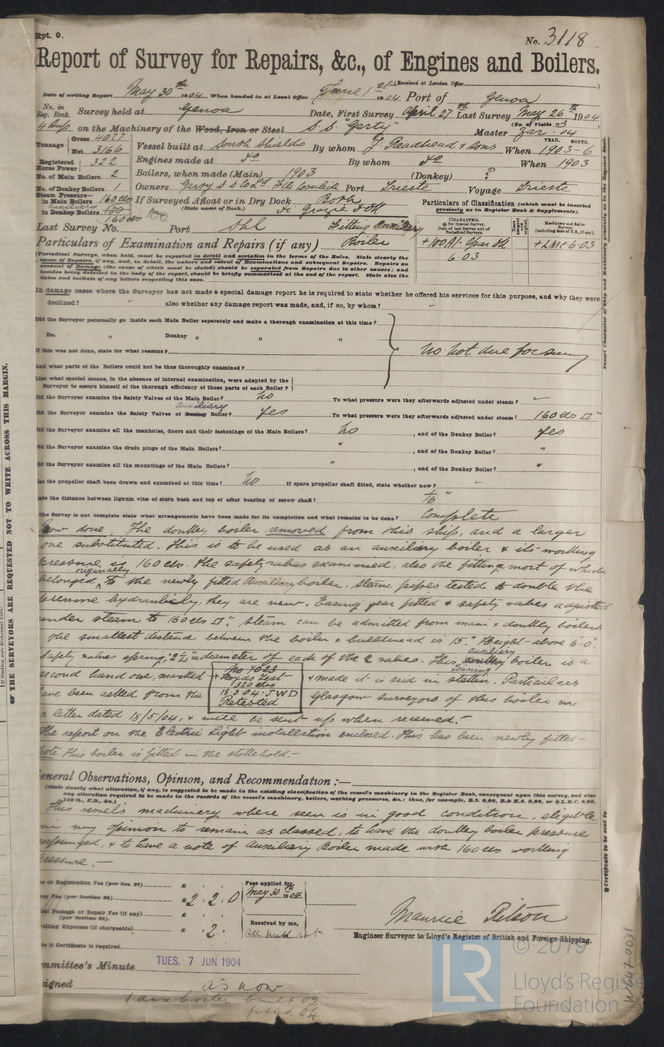 Rpt. 9.
No. 3118
Report of Survey for Repairs, &c., of Engines and Boilers.
(Received at London Office
Date of writing Report May 30th 1904 When handed in at Local Office June 1st 1904 Port of Genoa
No. in Reg. Book. Survey held at Genoa Date, First Survey April 27th Last Survey May 26th 1904
(No. of Visits 3)
on the Machinery of the Wood, Iron or Steel S.S. Gerty Master
Tonnage Gross 4077 Net 3166 Vessel built at South Shields By whom J. Readhead & Sons When 1903-6
YEAR. MONTH.
Registered Horse Power 322 Engines made at do By whom do When 1903
No. of Main Boilers 2 Boilers, when made (Main) 1903 (Donkey) ?
No. of Donkey Boilers 1 Owners Port Trieste Voyage Trieste
Steam Pressure in Main Boilers 160 lbs If Surveyed Afloat or in Dry Dock Both
(State name of Dock.) Di Grazie
in Donkey Boilers 100
auxiliary 160 lbs
Particulars of Classification (which must be inserted precisely as in Register Book & Supplements).
Last Survey No. Port Shl Fitting Auxiliary Boiler
+100A1.
6.03
+LMC 6.03
Particulars of Examination and Repairs (if any)
(Periodical Surveys, when held, must be reported in detail and seriatim in the terms of the Rules. State clearly the cause of Repairs, if any, and, in detail, the nature and extent of Examinations and subsequent Repairs. Repairs on account of Damage (the cause of which must be stated) should be separated from Repairs due to other causes; and besides being detailed in the body of the report, should be briefly summarised at the end of the report. State also the dates and initials of any letters respecting this case.
In damage cases where the Surveyor has not made a special damage report he is required to state whether he offered his services for this purpose, and why they were
declined? " also whether any damage report was made, and, if so, by whom? "
Did the Surveyor personally go inside each Main Boiler separately and make a thorough examination at this time?
Do. " Donkey " " "
If this was not done, state for what reasons?
No. Not due for survey
And what parts of the Boilers could not be thus thoroughly examined?
Also what special means, in the absence of internal examination, were adopted by the
Surveyor to assure himself of the thorough efficiency of those parts of each Boiler?
Did the Surveyor examine the Safety Valves of the Main Boiler? No To what pressure were they afterwards adjusted under steam? "
auxiliary
Did the Surveyor examine the Safety Valves of Donkey Boiler? Yes To what pressure were they afterwards adjusted under steam? 160 lbs □"
Did the Surveyor examine all the manholes, doors and their fastenings of the Main Boilers? No , and of the Donkey Boiler? Yes
Did the Surveyor examine the drain plugs of the Main Boilers? " , and of the Donkey Boiler? "
Did the Surveyor examine all the mountings of the Main Boilers? " , and of the Donkey Boiler? "
Has the propeller shaft been drawn and examined at this time? No If spare propeller shaft fitted, state whether new? "
State the distance between lignum vitæ of stern bush and top of after bearing of screw shaft? 1/16"
If the Survey is not complete state what arrangements have been made for its completion and what remains to be done? Complete
Now done. The donkey boiler removed from this ship, and a larger
one substituted. This is to be used as an auxiliary boiler & its working
pressure is 160 lbs. The safety valves examined, also the fittings, most of which
originally
belonged to the newly fitted Auxiliary boiler. Steam pipes tested to double the
pressure hydraulicly, they are new. Easing gear fitted & safety valves adjusted
under steam to 160 lbs □". Steam can be admitted from main & donkey boilers
The smallest distance between the boiler & bulkhead is 15". Height above 6'0".
Safety valve springs, 2½" = diameter of each of the 2 valves. This auxiliary boiler is a
second hand one, marked & made it is said in Particulars
No 7623
Lloyds Test
320 lbs
18.3.04. JWD
Retested
have been asked from the Glasgow surveyors of this boiler in
a letter dated 18/5/04, & will be sent up when received.-
The report on the Electric Light installation enclosed. This has been newly fitted-
Note. This boiler is fitted in the stokehold.-
General Observations, Opinion, and Recommendation:—
(State clearly what alteration, if any, is suggested to be made in the existing classification of the vessel's machinery in the Register Book, consequent upon this survey, and also any alteration required to be made in the records of the vessel's machinery, boilers, working pressure, &c.: thus, for example,
This vessel's machinery where seen is in good condition, eligible
in my opinion to remain as classed, to have the donkey boiler pressure
expunged, & to have a note of Auxiliary Boiler made with 160 lbs working
pressure.-
Survey Fee (per Section 28) 2 . 2 . 0 Fees applied for, May 30th 1904
Special Damage or Repair Fee (if any) (per Section 28)
Travelling Expenses (if chargeable) 2 . Received by me,
Maurice Tilson
Engineer Surveyor to Lloyd's Register of British and Foreign Shipping.
Committee's Minute TUES. 7 JUN 1904
Signed as now
1 aux boiler built 02
fitted 04
OF THE SURVEYORS ARE REQUESTED NOT TO WRITE ACROSS THIS MARGIN.
LR
© 2019
Lloyd's Register
Foundation